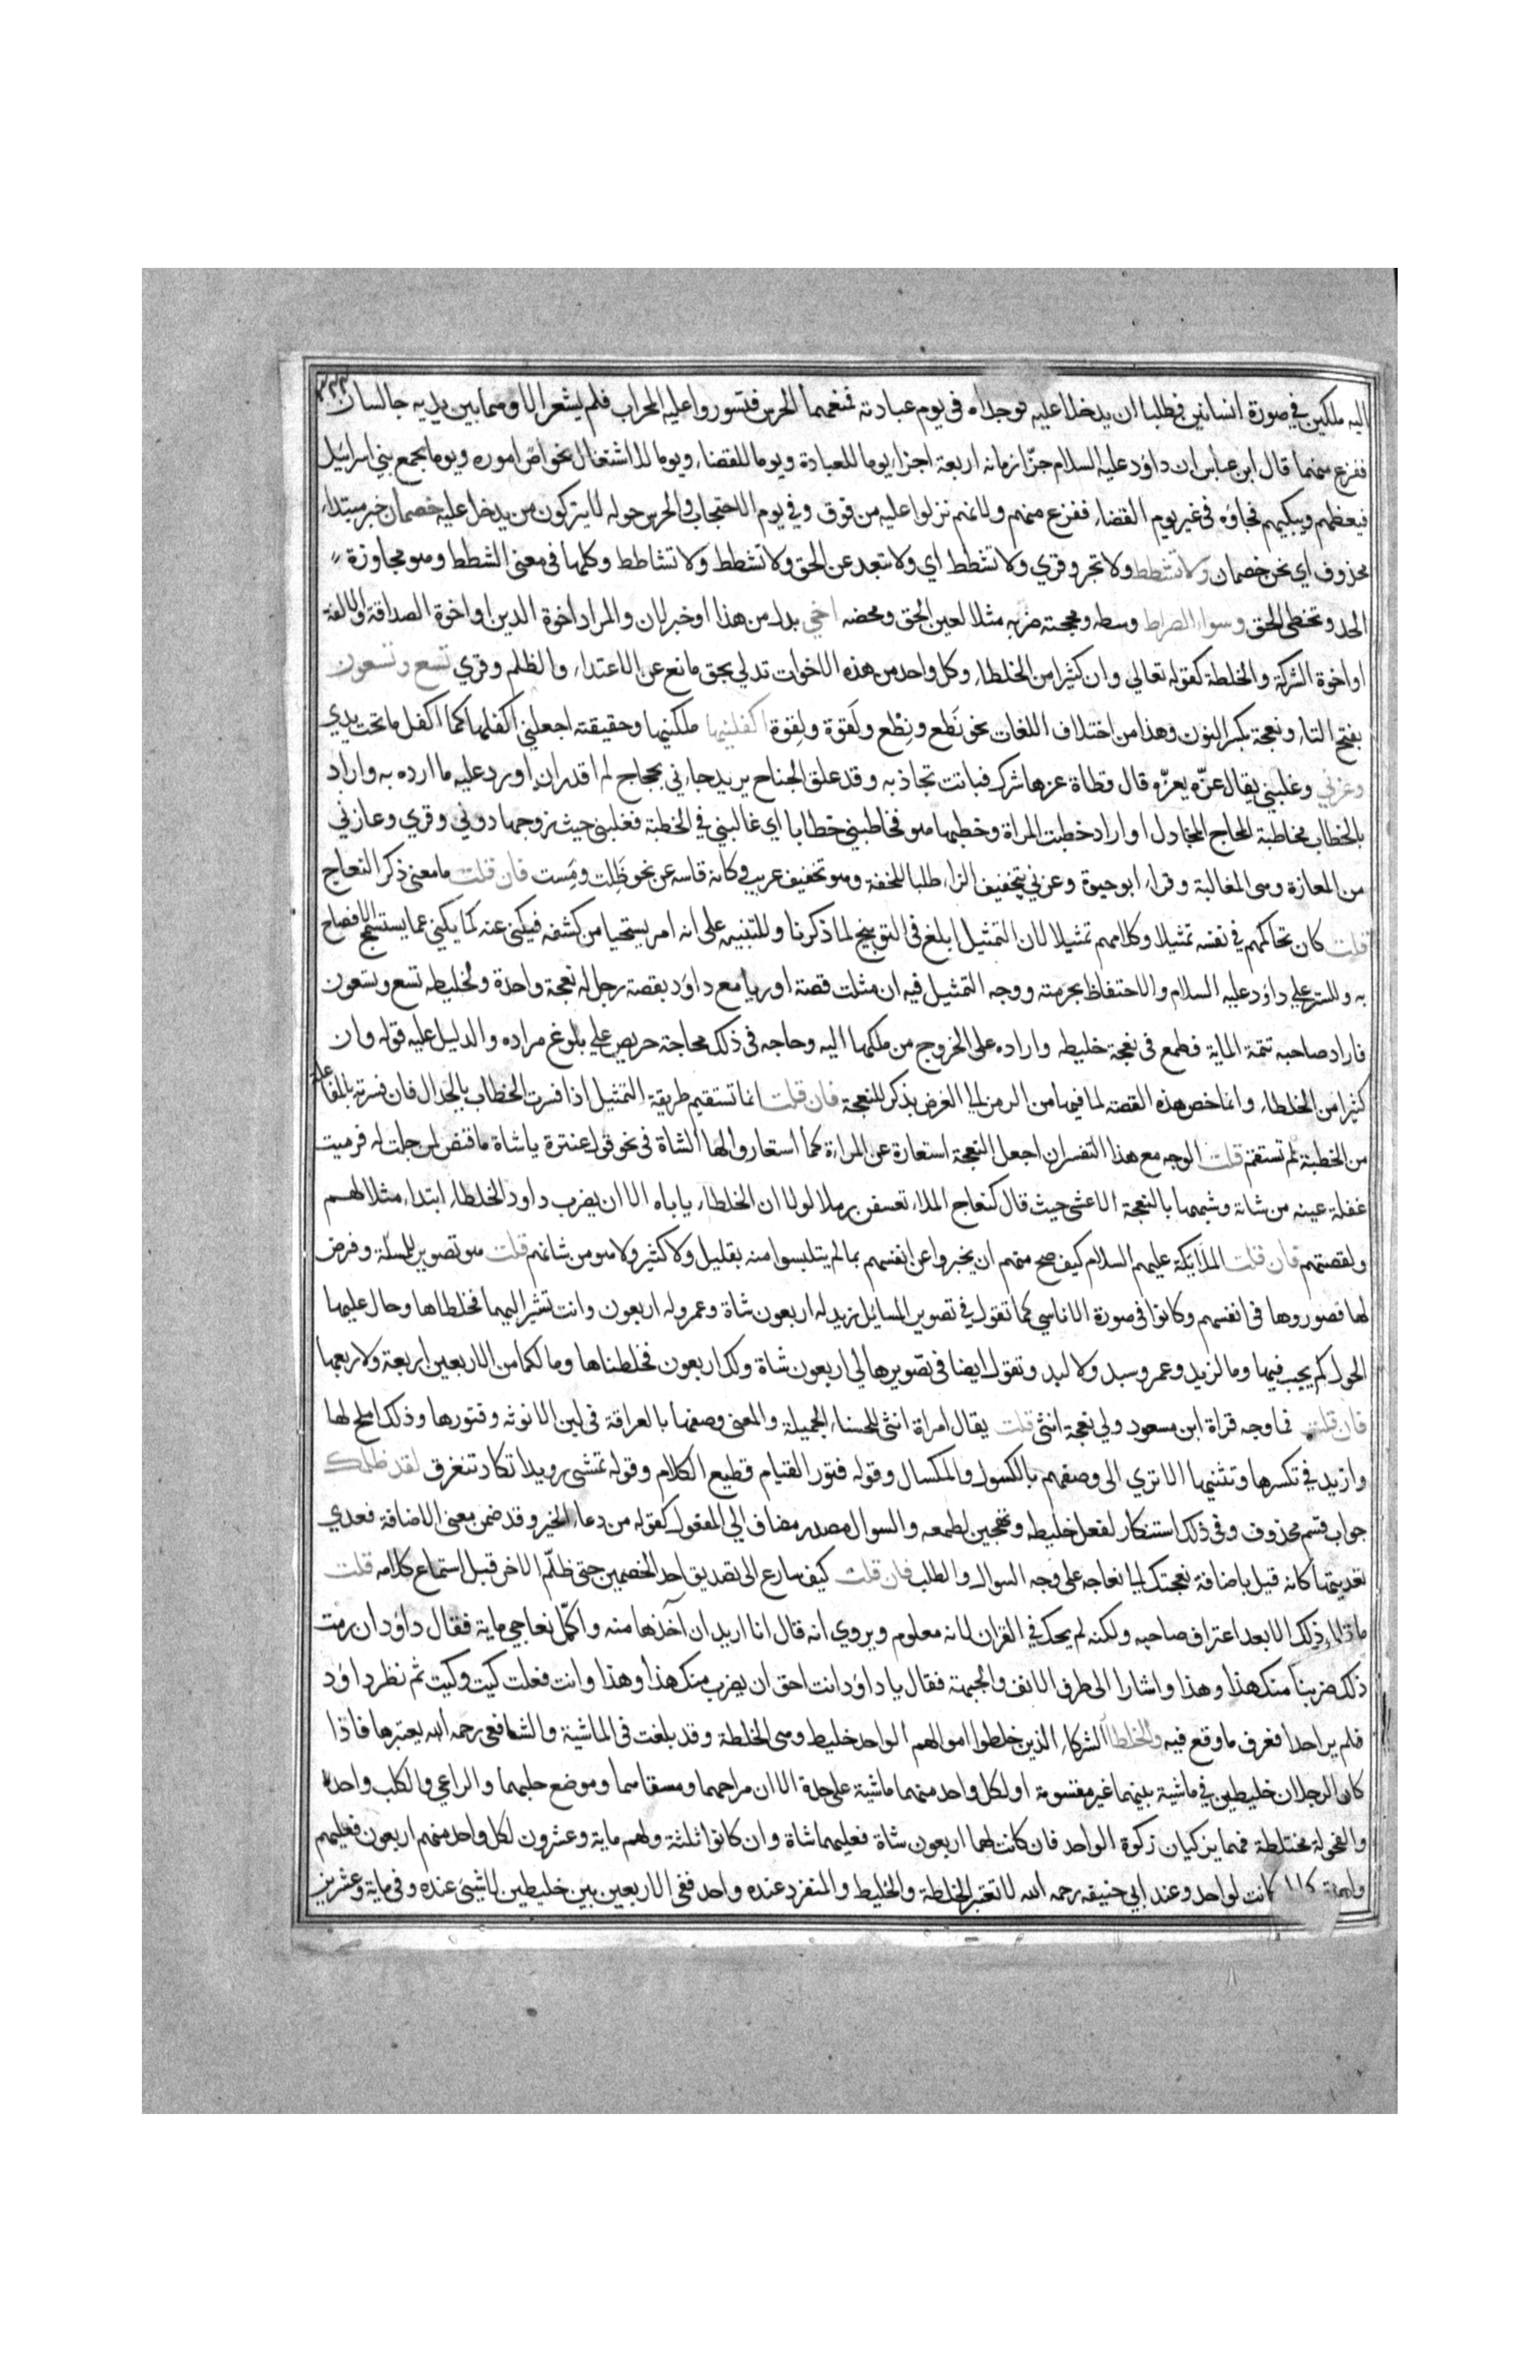 ٣٢٢
اليه ملكين في صورة انسانين فطلبا ان يدخلا عليه فوجداه فى يوم عبادته فمنعهما الحرس فتسوروا عليه المحراب فلم يشعر الا وهما بين يديه جالسان
ففزع منهما قال ابن عباس ان داوٗد عليه السلام جزّا زمانه اربعة اجزاء يوما للعبادة ويوما للقضاء ويوما للاشتغال بخواصّ اموره ويوما يجمع بني اسرائيل
فيعظهم ويبكيهم فجاؤه فى غير يوم القضاء ففزع منهم ولانهم نزلوا عليه من فوق وفي يوم الاحتجاب والحرس حوله لا يتركون من يدخل عليه خصمان خبر مبتداء
محذوف اي نحن خصمان ولا تشطط ولا تجر وقري ولا تشطط اي ولا تبعد عن الحق ولا تشطط ولا تشاطط وكلها فى معنى الشطط وهو مجاوزة
الحد وتخطى الحق وسواء الصراط وسطه ومحجته ضربه مثلا لعين الحق ومحضه اخي بدل من هذا او خبر لان والمراد اخوة الدين او اخوة الصداقة والالفة
او اخوة الشركة والخلطة كقوله تعالي وان كثيرا من الخلطاء وكل واحد من هذه الاخوات تدلي بحق مانع عن الاعتداء والظلم وقري تسع وتسعون
بفتح التاء ونعجة بكسر النون وهذا من اختلاف اللغات نحو نَطع ونِطْع ولَقوة ولِقوة اكفلنيها ملكنيها وحقيقته اجعلني اكفلها كما اكفل ما تحت يدي
وعزني وغلبني يقال عزّه يعزّه قال قطاة عزها شرك فباتت تجاذبه وقد علق الجناح يريد جاءني بحجاج لم اقدر ان اورد عليه ما ارده به واراد
بالخطاب مخاطبة المحاج المجادل او اراد خطبت المراة وخطبها هو فخاطبني خطابا اي غالبني في الخطبة فغلبني حيث زوجها دوني وقري وعازني
من المعازة وهى المغالبة وقراء ابو حيوة وعزني بتخفيف الزاء طلبا للخفة وهو تخفيف غريب وكانه قاسه عن نحو ظَلت ومَست فان قلت ما معنى ذكر النعاج
قلت كان تحاكمهم في نفسه تمثيلا وكلامهم تمثيلا لان التمثيل ابلغ فى التوبيخ لما ذكرنا وللتنبيه على انه امر يستحيا من كشفه فيكنى عنه كما يكنى عما يستسمج الافصاح
به وللستر علي داؤد عليه السلام والاحتفاظ بحرمته ووجه التمثيل فيه ان مثلت قصة اوريا مع داوٗد بقصة رجل له نعجة واحدة ولخليطه تسع وتسعون
فاراد صاحبه تتمة الماية فطمع فى نعجة خليطه واراده على الخروج من ملكها اليه وحاجه فى ذلك محاجة حريص علي بلوغ مراده والدليل عليه قوله وان
كثيرا من الخلطاء وانما خص هذه القصة لما فيها من الرمز الي الغرض بذكر النعجة فان قلت انما تستقيم طريقة التمثيل اذا فسرت الخطاب بالجدال فان فسرته بالمفاعلة
من الخطبة لم تستقم قلت الوجه مع هذا التفسير ان اجعل النعجة استعارة عن المراءة كما استعاروا لها الشاة فى نحو قول عنترة يا شاة ما قنص لمن حلت له فرميت
غفلة عينه من شاته وشبهها بالنعجة الاعشى حيث قال كنعاج الملاء تعسفن رملا لولا ان الخلطاء ياباه الا ان يضرب داود الخلطاء ابتداء مثلا لهم
ولقصتهم فان قلت الملايكة عليهم السلام كيف صح منهم ان يخبروا عن انفسهم بما لم يتلبسوا منه بقليل ولا كثير ولا هو من شانهم قلت هو تصوير للمسئلة وفرض
لها فصوروها فى انفسهم وكانوا فى صورة الاناسي كما تقول في تصوير المسايل زيد له اربعون شاة وعمرو له اربعون وانت تشير اليهما فخلطاها وحال عليها
الحول كم يجب فيها وما لزيد وعمرو سبد ولا لبد وتقول ايضا فى تصويرها لي اربعون شاة ولك اربعون فخلطناها وما لكما من الاربعين اربعة ولا ربعها
فان قلت فما وجه قراة ابن مسعود ولي نعجة انثى قلت يقال امراة انثى للحسناء الجميلة والمعنى وصفها بالعراقة فى لين الانوثه وفتورها وذلك املح لها
وازيد في تكسرها وتثنيها الا تري الى وصفهم بالكسول والمكسال وقوله فتور القيام قطيع الكلام وقوله تمشى رويدا تكاد تنغرف لقد ظلمك
جواب قسم محذوف وفى ذلك استنكار لفعل خليطه وتهجين لطمعه والسوال مصدر مضاف الي المفعول كقوله من دعاء الخير وقد ضمن معنى الاضافة فعدي
تعديتها كانه قيل باضافة نعجتك الي نعاجه على وجه السوال والطلب فان قلت كيف سارع الى تصديق احد الخصمين حتى ظلّم الاخر قبل استماع كلامه قلت
ما قال ذلك الا بعد اعتراف صاحبه ولكنه لم يحك في القران لانه معلوم ويروي انه قال انا اريد ان آخذها منه واكمّل نعاجي ماية فقال داوٗد ان رمت
ذلك ضربنا منك هذا وهذا واشارا الى طرف الانف والجبهة فقال يا داوٗد انت احق ان يضرب منك هذا وهذا وانت فعلت كيت وكيت ثم نظر داوٗد
فلم ير احدا فعرف ما وقع فيه والخلطاء الشركاء الذين خلطوا اموالهم الواحد خليط وهى الخلطة وقد بلغت فى الماشية والشافعى رحمه الله يعتبرها فاذا
كان الرجلان خليطين في ماشية بينهما غير مقسومة او لكل واحد منهما ماشية على حدة الا ان مراحهما ومسقاهما وموضع حلبهما والراعي والكلب واحد
والفحولة مختلطة فهما يزكيان زكوة الواحد فان كانت لهما اربعون شاة فعليهما شاة وان كانوا ثلثة ولهم ماية وعشرون لكل واحد منهم اربعون فعليهم
كانت لواحد وعند ابي حنيفه رحمه الله لا تعتبر الخلطة والخليط والمنفرد عنده واحد ففى الاربعين بين خليطين لا شيئ عنده وفى ماية وعشرين